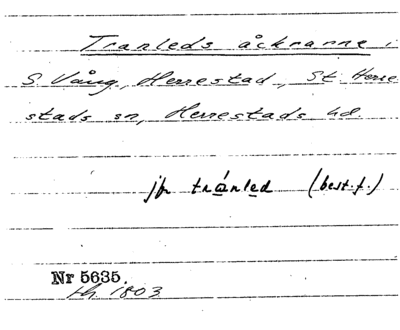 Tranleds åckrarne i
S. Vång, Herrestad, St. Herre
stads sn, Herrestads hd.
jfr tránled (best.f.)
Nr 5635.
1803